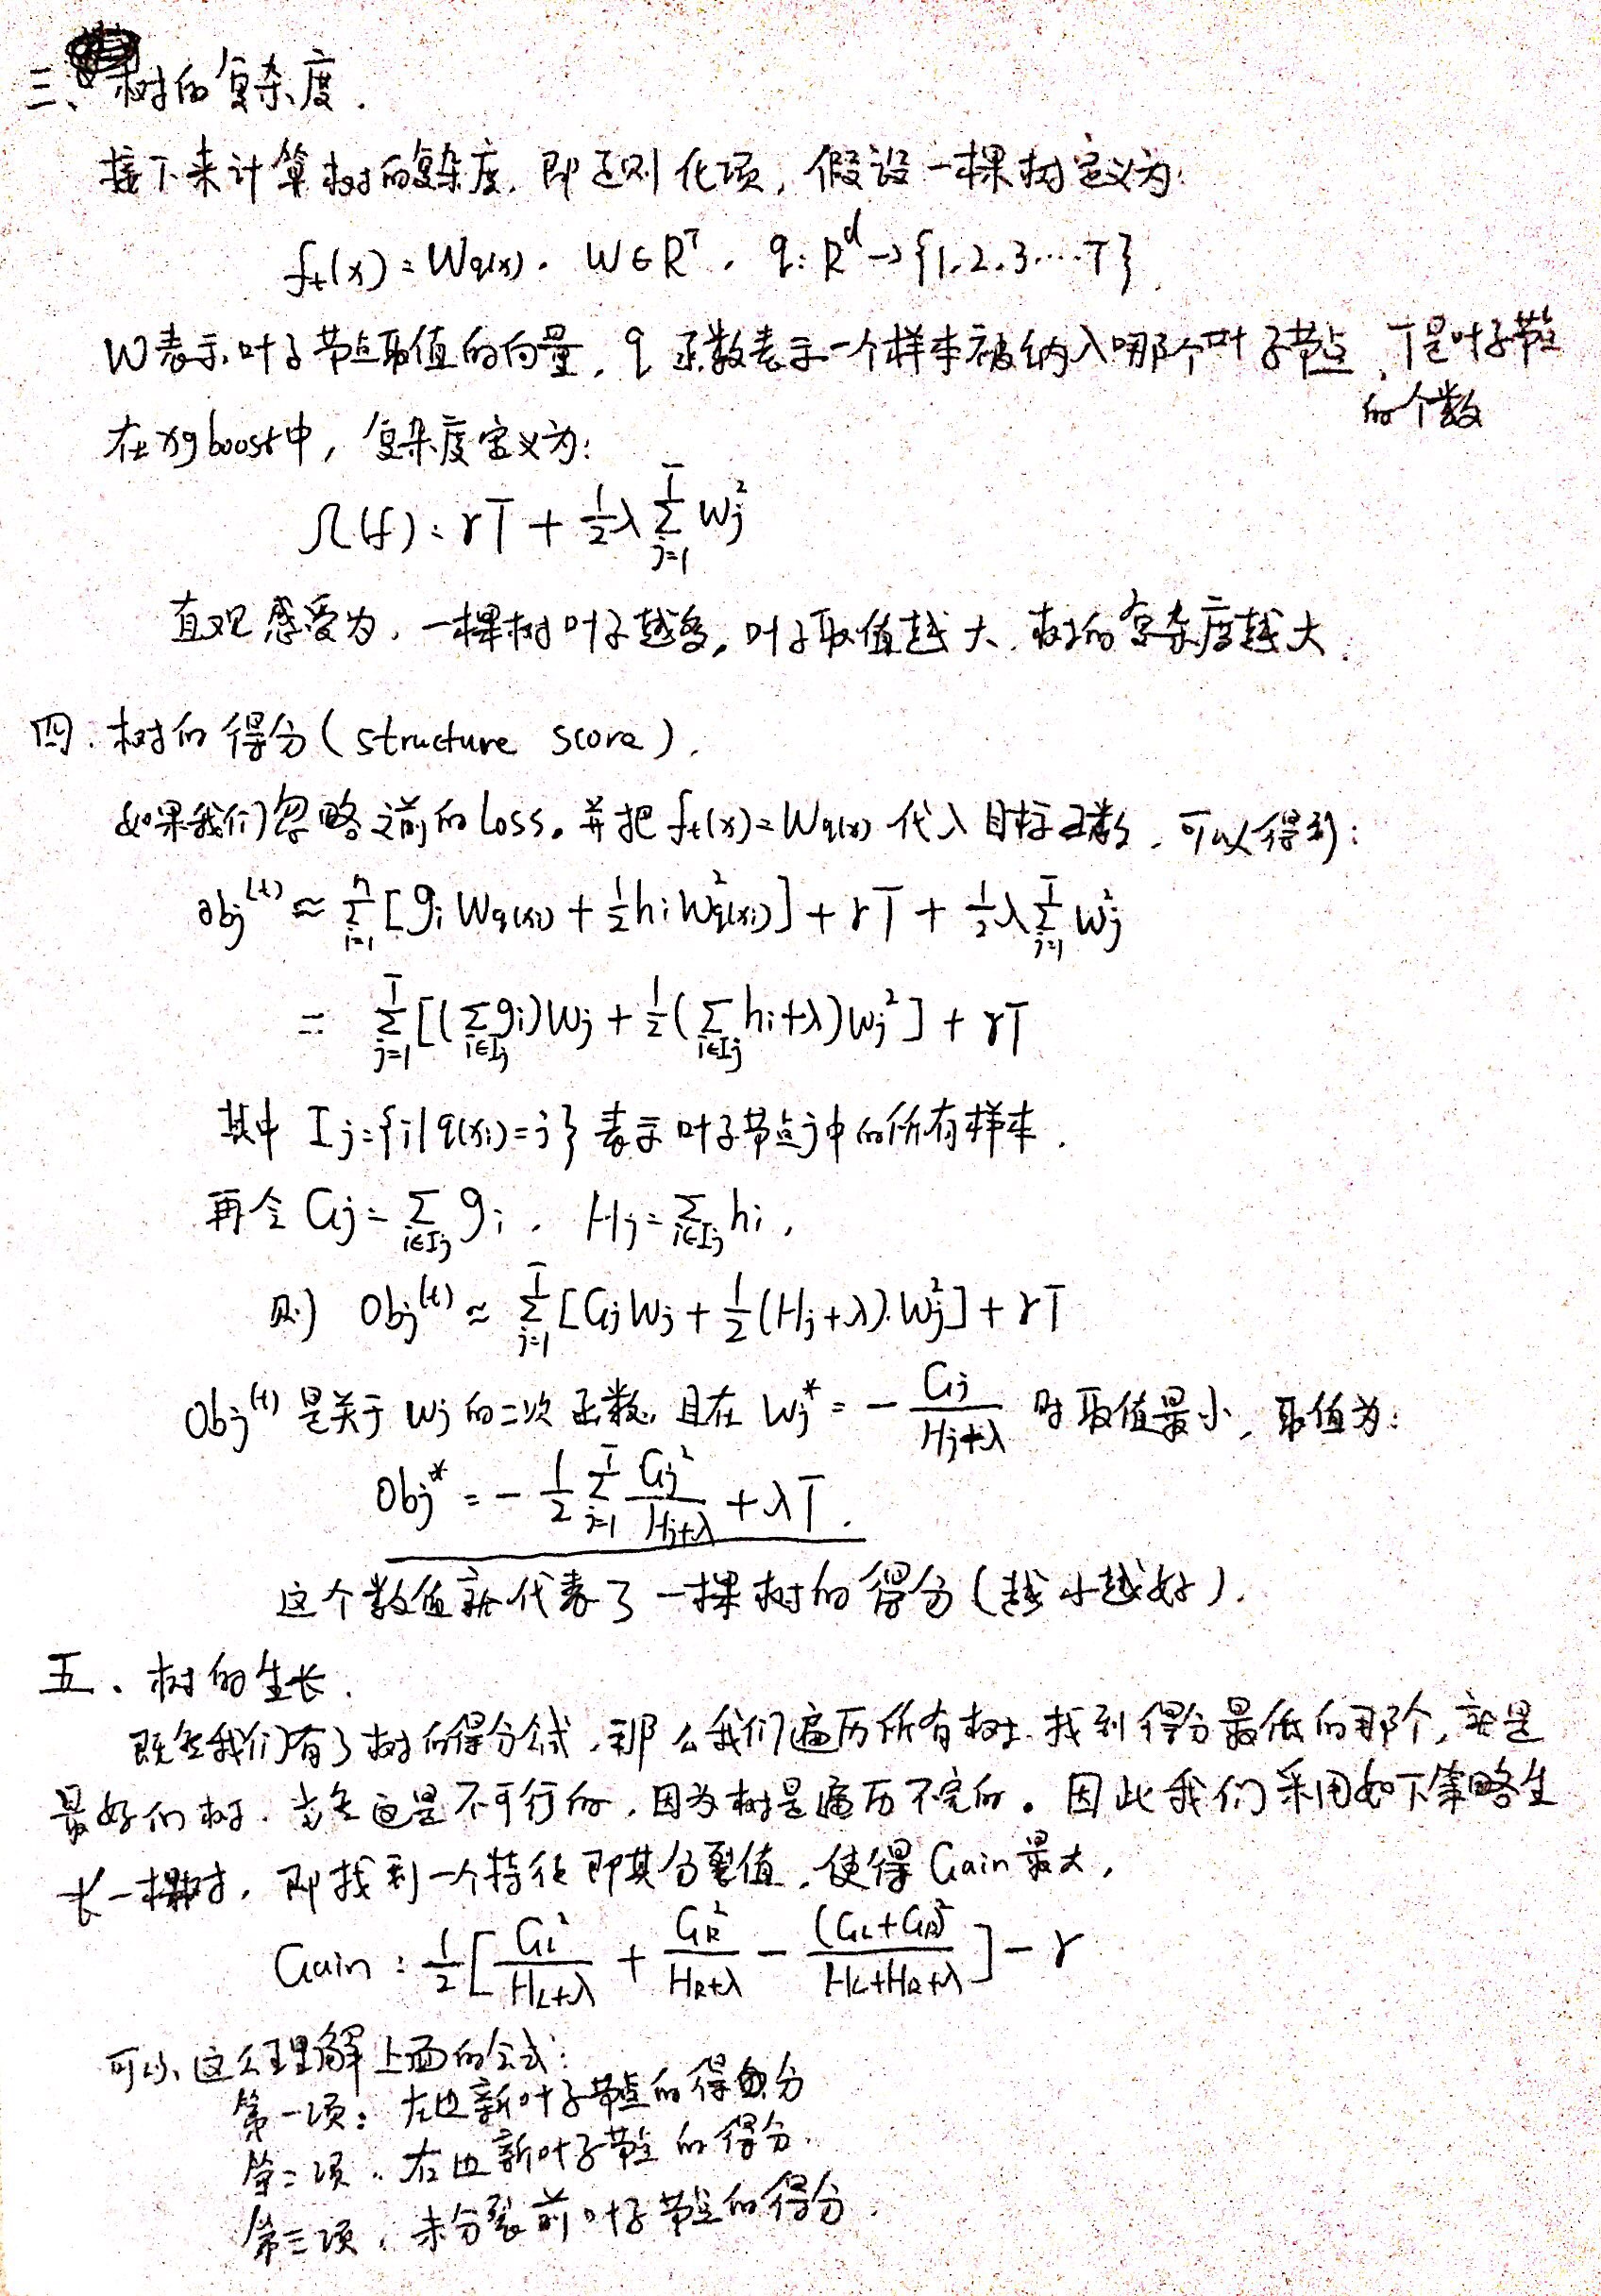 三、树的复杂度.
接下来计算树的复杂度,即正则化项,假设一棵树定义为:
f_t(x)=W_{q(x)}, W∈R^T, q: R^d→{1,2,3……T}.
W表示叶子节点取值的向量,q函数表示一个样本被纳入哪个叶子节点,T是叶子节点
的个数
在xgboost中,复杂度定义为:
Ω(f)=γT+\frac{1}{2}λ\sum_{j=1}^{T}W_j^2
直观感受为,一棵树叶子越多,叶子取值越大,树的复杂度越大.
四.树的得分(structure score).
如果我们忽略之前的loss,并把f_t(x)=W_{q(x)}代入目标函数,可以得到:
obj^{(t)}≈\sum_{i=1}^{n}[g_iW_{q(x_i)}+\frac{1}{2}h_iW_{q(x_i)}^2]+γT+\frac{1}{2}λ\sum_{j=1}^{T}W_j^2
=\sum_{j=1}^{T}[(\sum_{i∈I_j}g_i)W_j+\frac{1}{2}(\sum_{i∈I_j}h_i+λ)W_j^2]+γT
其中 I_j={i|q(x_i)=j}表示叶子节点j中的所有样本.
再令G_j=\sum_{i∈I_j}g_i, H_j=\sum_{i∈I_j}h_i,
则 Obj^{(t)}≈\sum_{j=1}^{T}[G_jW_j+\frac{1}{2}(H_j+λ)·W_j^2]+γT
Obj^{(t)}是关于W_j的二次函数,且在W_j^*=-\frac{G_j}{H_j+λ}时取值最小,取值为:
Obj^*=-\frac{1}{2}\sum_{j=1}^{T}\frac{G_j^2}{H_j+λ}+λT.
这个数值就代表了一棵树的得分(越小越好).
五、树的生长.
既然我们有了树的得分公式,那么我们遍历所有树,找到得分最低的那个,就是
最好的树.当然这是不可行的,因为树是遍历不完的。因此我们采用如下策略生
长一棵树,即找到一个特征即其分裂值,使得Gain最大,
Gain=\frac{1}{2}[\frac{G_L^2}{H_L+λ}+\frac{G_R^2}{H_R+λ}-\frac{(G_L+G_R)^2}{H_L+H_R+λ}]-γ
可以这么理解上面的公式:
第一项:左边新叶子节点的得分
第二项:右边新叶子节点的得分.
第三项:未分裂前叶子节点的得分.